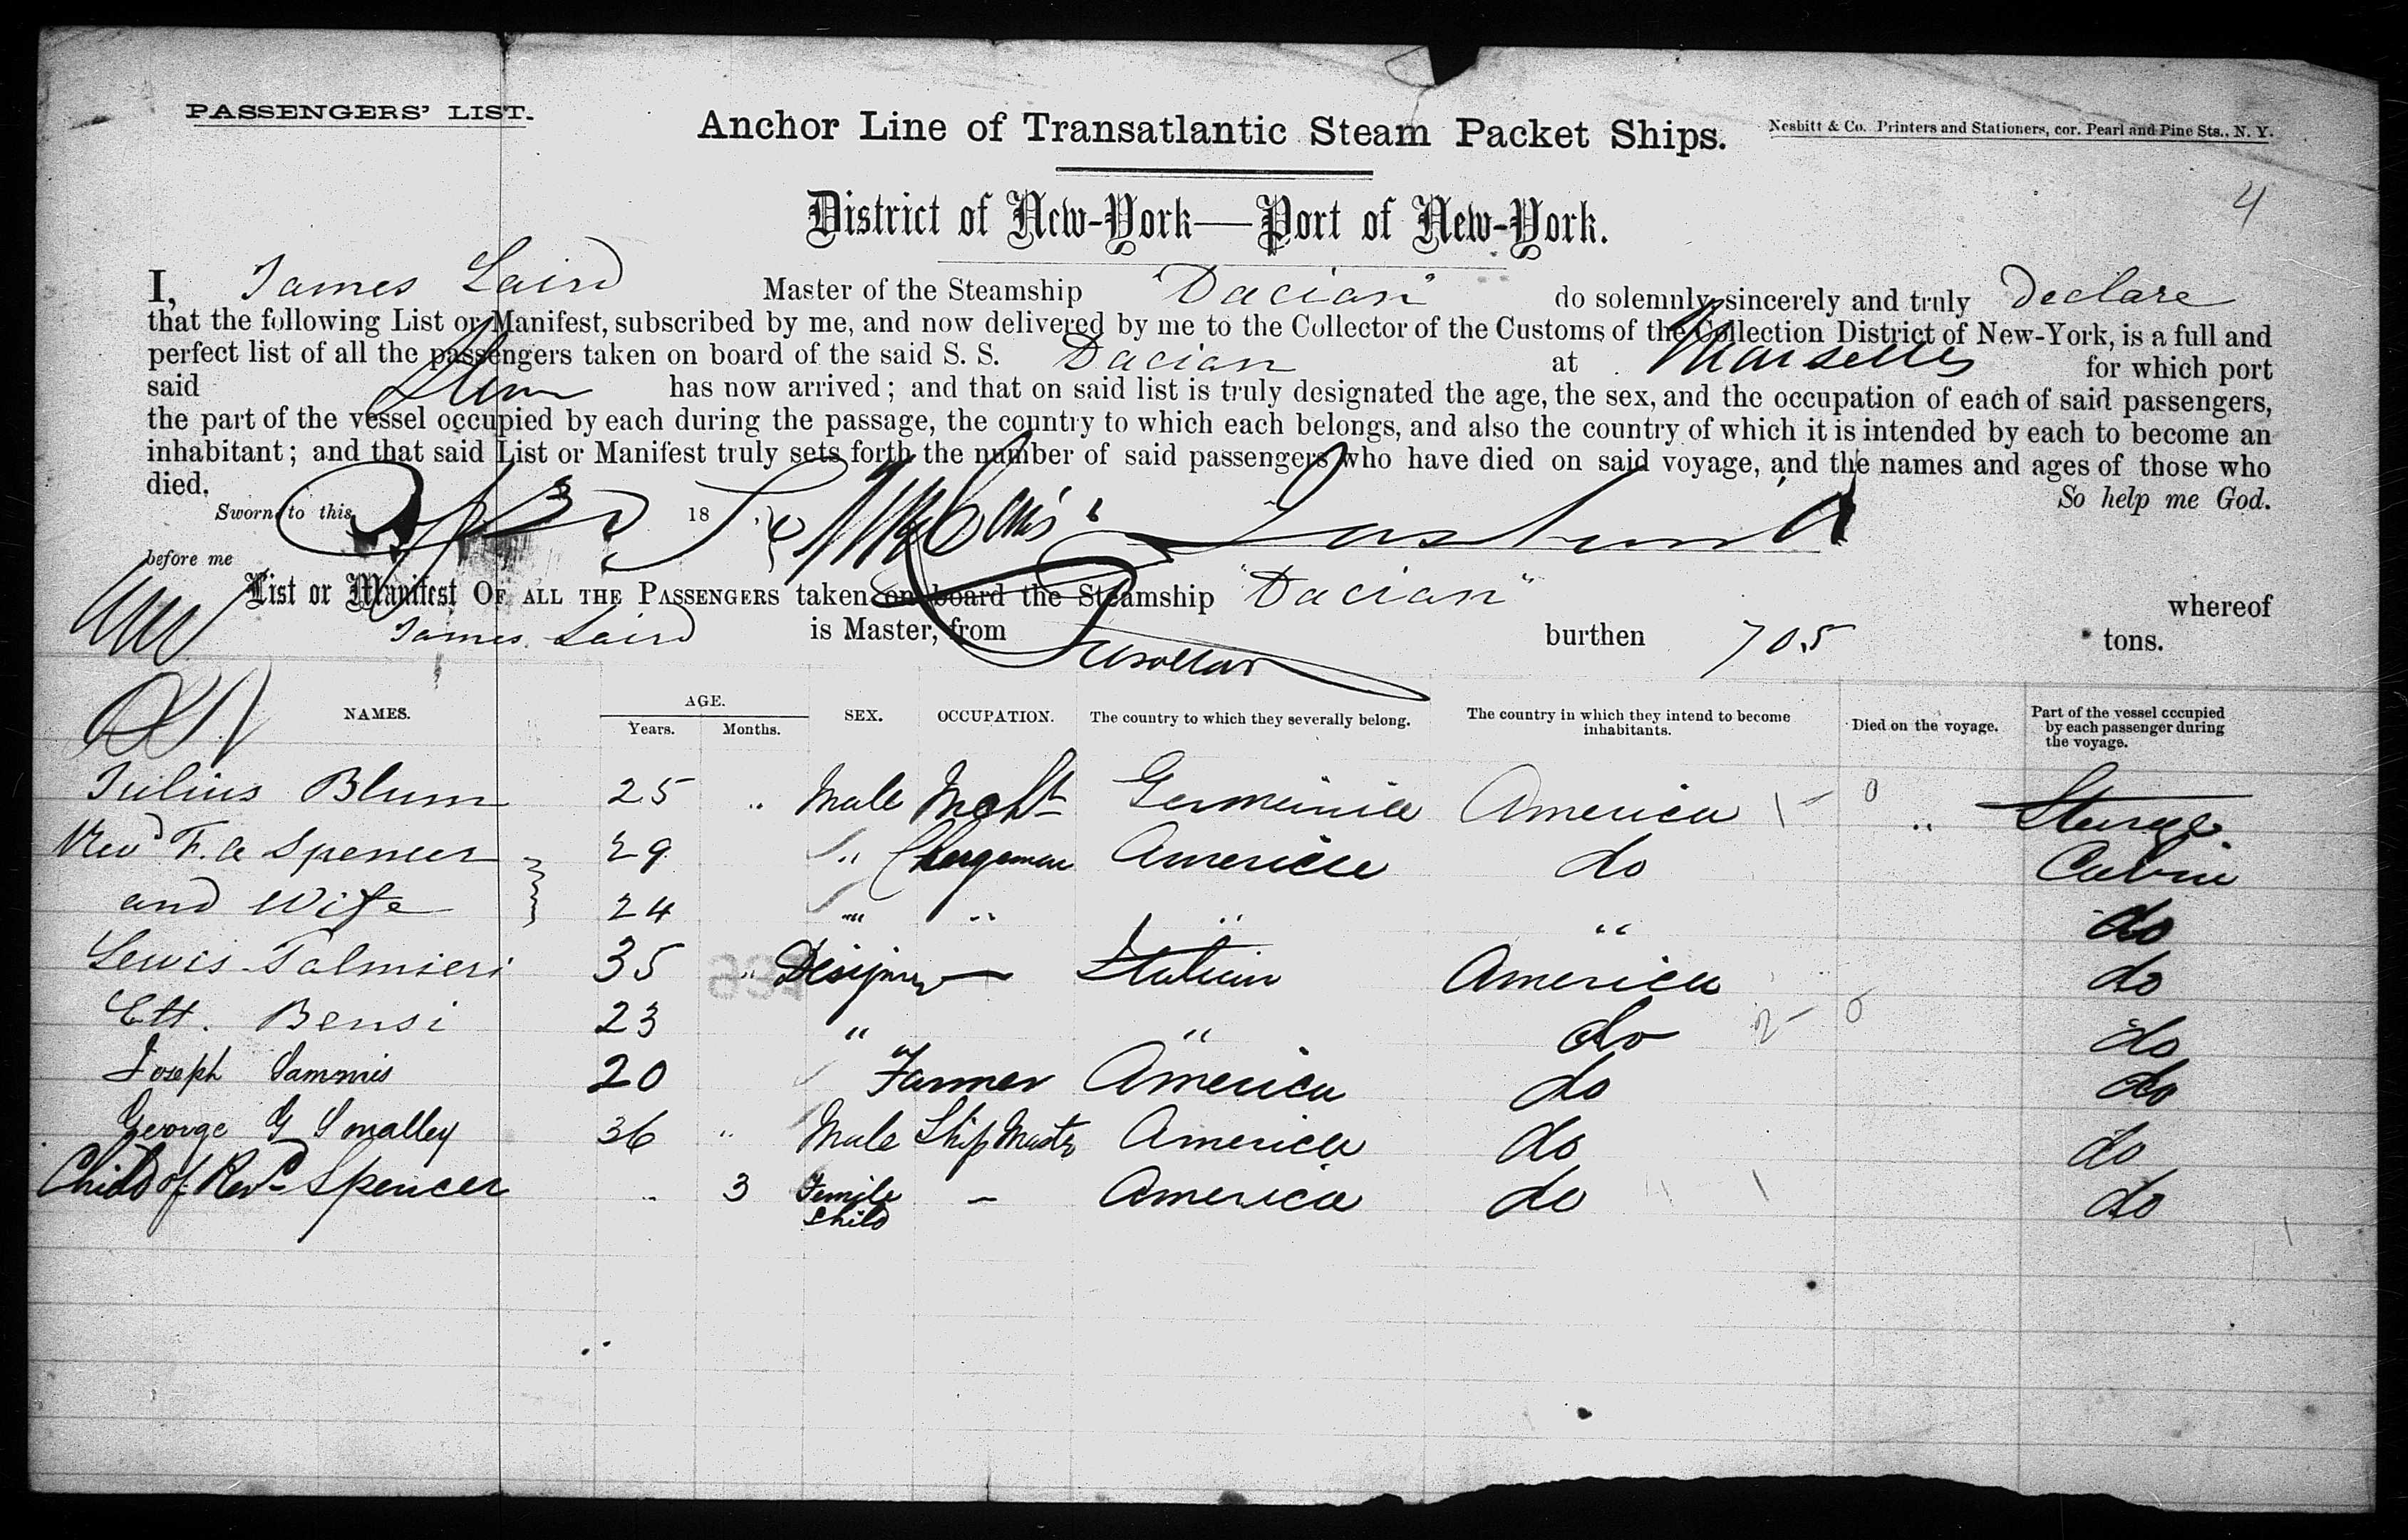 PASSENGERS' LIST.
Anchor Line of Transatlantic Steam Packet Ships.
Nesbitt & Co. Printers and Stationers, cor. Pearl and Pine Sts., N. Y.
4
District of New-York—Port of New-York.
I, James Laird Master of the Steamship "Dacian" do solemnly, sincerely and truly declare
that the following List or Manifest, subscribed by me, and now delivered by me to the Collector of the Customs of the Collection District of New-York, is a full and
perfect list of all the passengers taken on board of the said S. S. Dacian at Marseilles for which port
said has now arrived; and that on said list is truly designated the age, the sex, and the occupation of each of said passengers,
the part of the vessel occupied by each during the passage, the country to which each belongs, and also the country of which it is intended by each to become an
inhabitant; and that said List or Manifest truly sets forth the number of said passengers who have died on said voyage, and the names and ages of those who
died.
So help me God.
Sworn to this 18
before me
List or Manifest OF ALL THE PASSENGERS taken on board the Steamship "Dacian" whereof
James Laird is Master, from burthen 705 tons.
NAMES. AGE. Years. Months. SEX. OCCUPATION. The country to which they severally belong. The country in which they intend to become inhabitants. Died on the voyage. Part of the vessel occupied by each passenger during the voyage.
Julius Blum 25 " Male Mcht America 0 " Steerage
Revd F. A Spencer 29 " Clergeman America do Cabin
and Wife 24 " " " " do
Lewis Palmieri 35 " Designer — Italian America do
Ett. Bensi 23 " " do 2 - 0 do
Joseph Sammis 20 Farmer America do do
George G Smalley 36 " Male Ship Master America do do
Child of Revd Spencer " 3 Femile Child - America do do